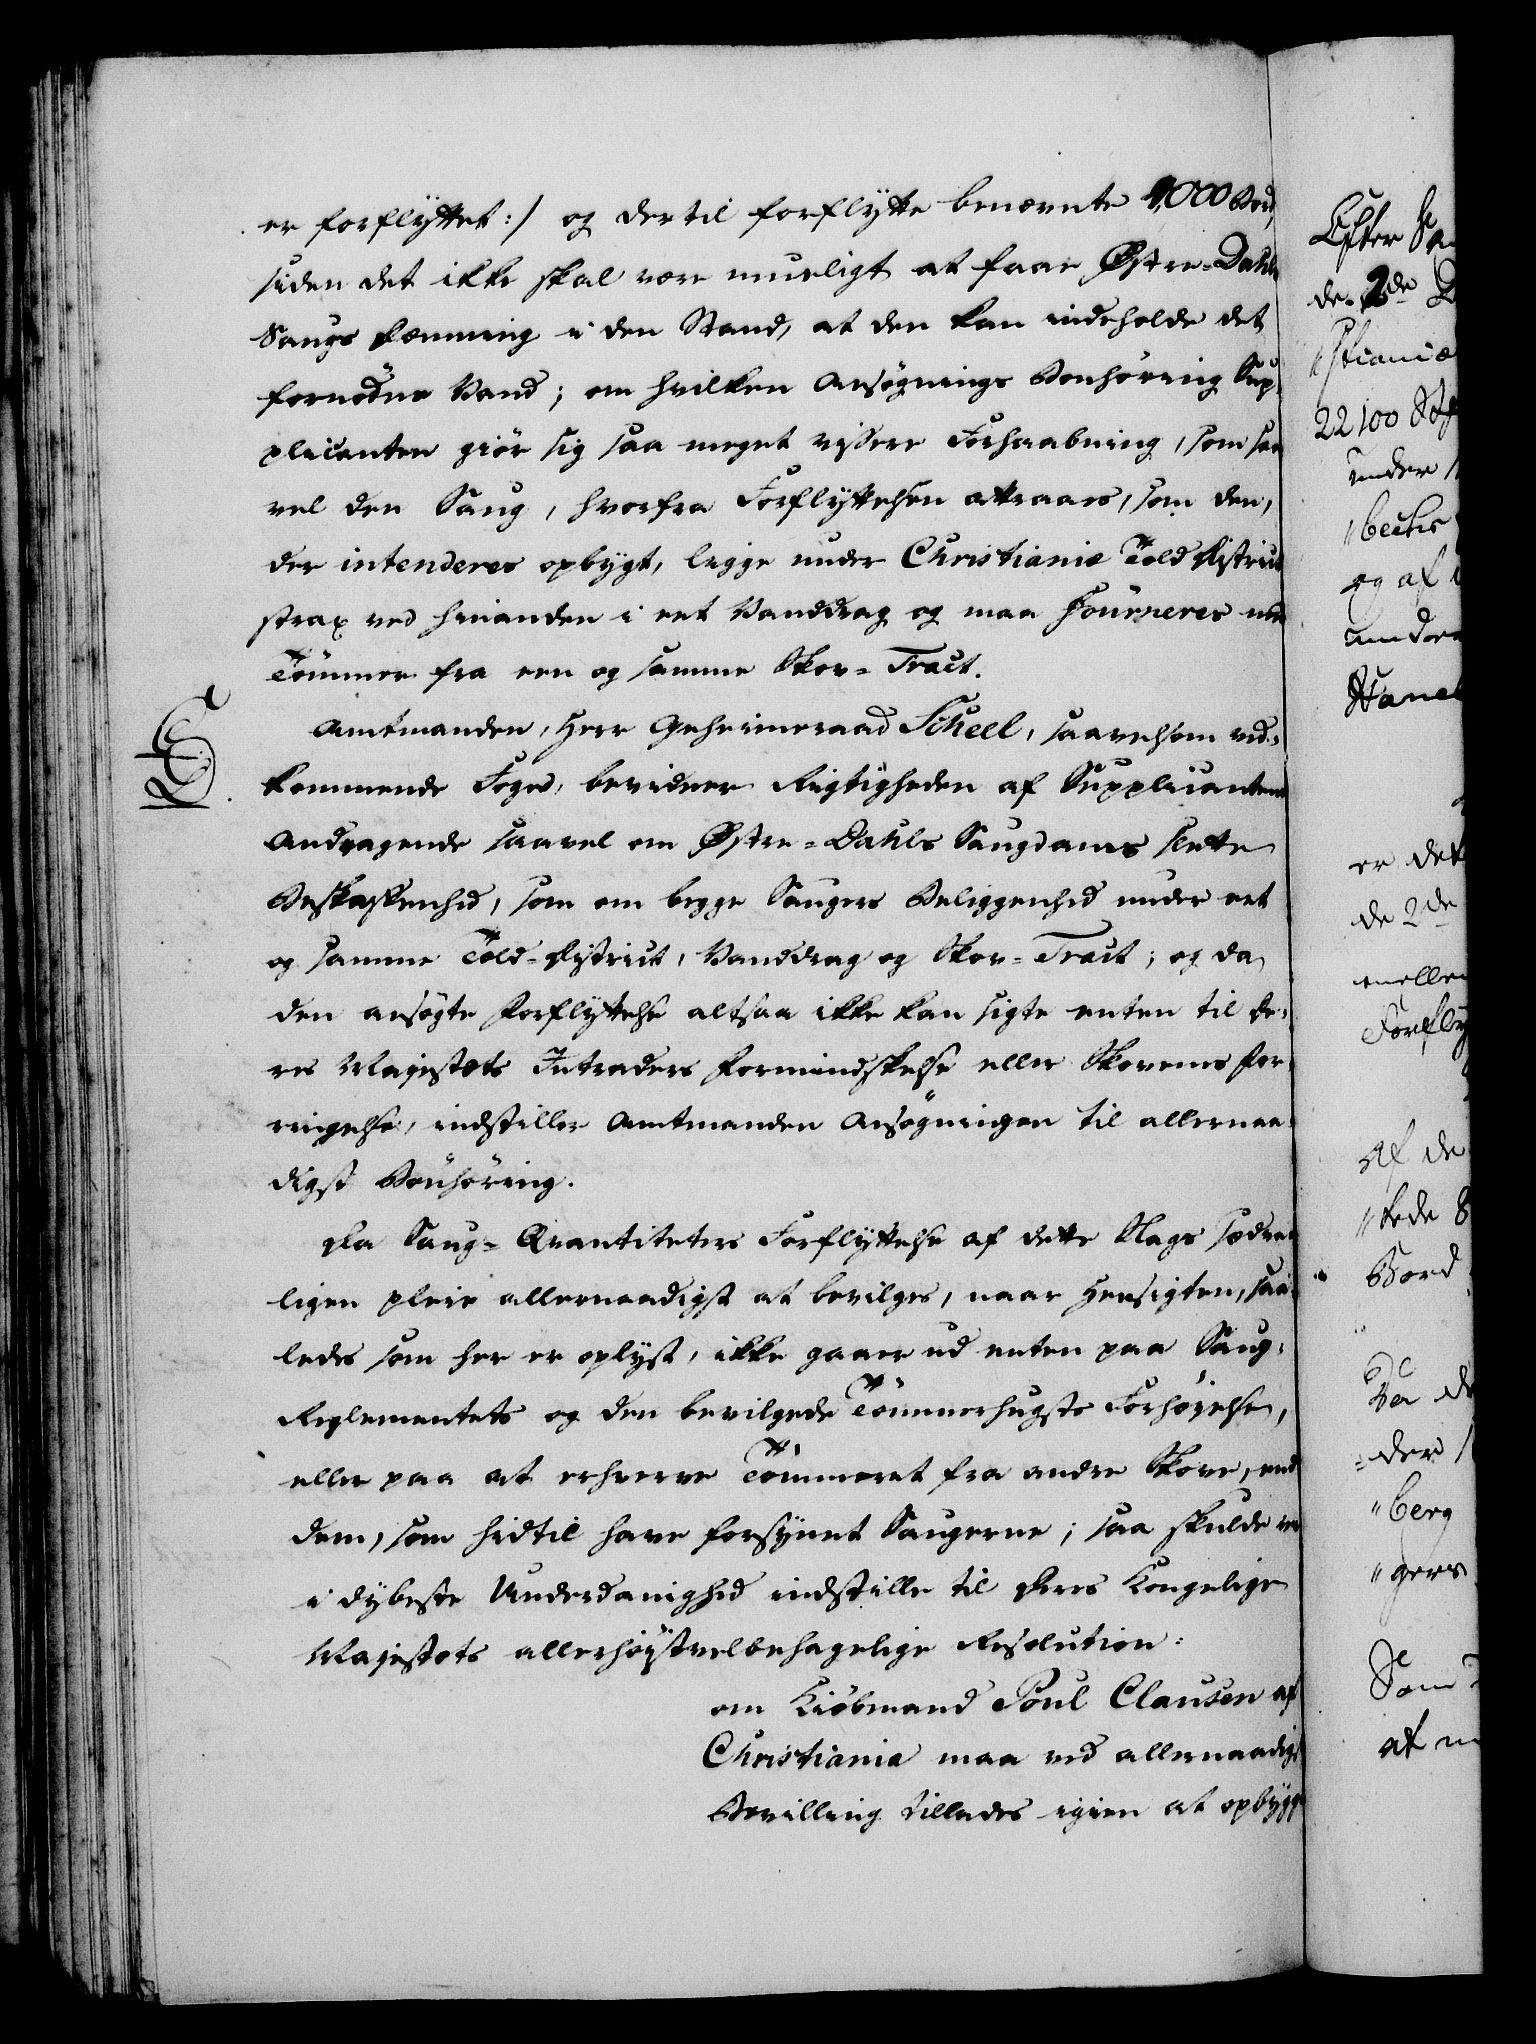 er forflyttet:/ og dertil forflytte benævnte 4000 Bord,
siden det ikke skal være mueligt at faae Østre-Dahls
Saugs Dæmning i den Stand, at den kan indeholde det
fornødne Vand; om hvilken Ansøgnings Bønhøring Sup-
plicanten giør sig saa meget vissere Forhaabning, som saa
vel den Saug, hvorfra Forflyttelsen attraaes, som den,
der intenderes opbygt, ligge under Christianiæ Told District
strax ved hinanden i eet Vanddrag og maa fourneres med
Tømmer fra een og samme Skov-Tract.
Amtmanden, Herr Geheimeraad Scheel, saavelsom ved-
kommende Foged, bevidner Rigtigheden af Supplicantens
Andragende saavel om Østre-Dahls Saugdams slette
Beskaffenhed, som om begge Saugers Beliggenhed under eet
og samme Told-District, Vanddrag og Skov-Tract; og da
den ansøgte Forflyttelse altsaa ikke kan sigte enten til De-
res Majestæts Intraders Formindskelse eller Skovenes For-
ringelse, indstiller Amtmanden Ansøgningen til allernaa-
digst Bønhøring.
Da Saug-Qvantiteters Forflyttelse af dette Slags sædvan-
ligen pleie allernaadigst at bevilges, naar Hensigten, saa-
ledes som her er oplyst, ikke gaaer ud enten paa Saug-
Reglementets og den bevilgede Tømmerhugsts Forhøyelse,
eller paa at erhverve Tømmeret fra andre Skove, end
dem, som hidtil have forsynet Saugerne; saa skulde vi
i dybeste Underdanighed indstille til Deres Kongelige
Majestæts allerhøystvelbehagelige Resolution:
om Kiøbmand Poul Clausen af
Christiania maa ved allernaadigst
Bevilling tillades igien at opbygge
Efter
de 2de
stianiæ
22100
under
becks
og af
er det
de 2de
Af de
Bord
der
berg
gers
Som
at